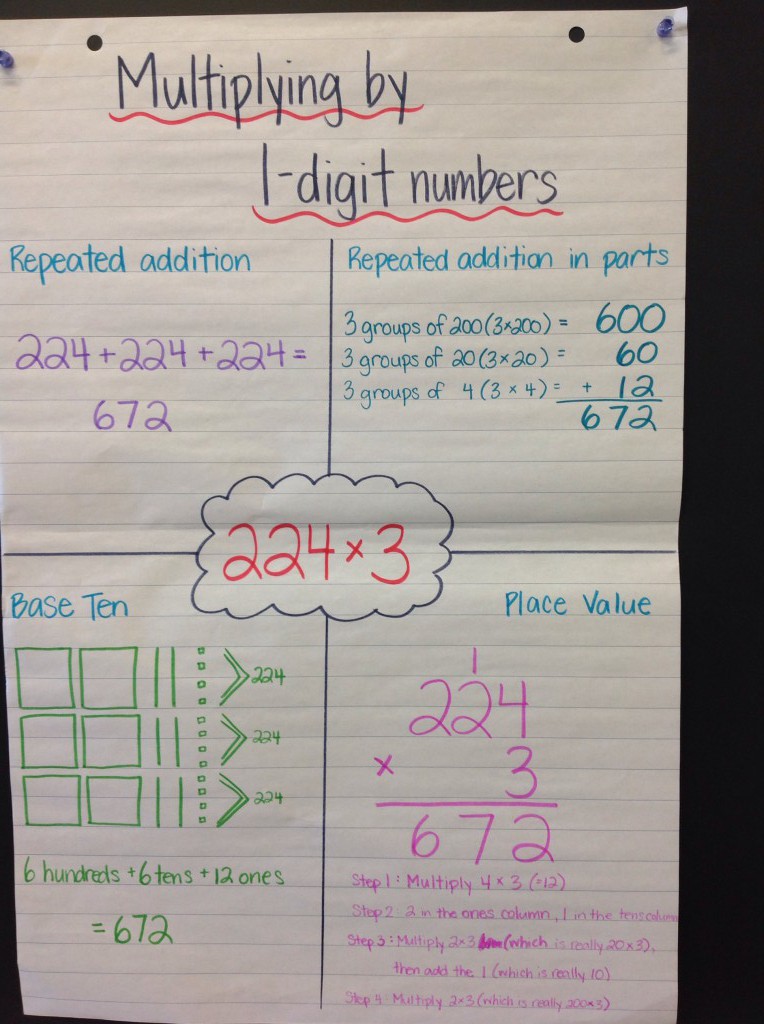 Multiplying by
1-digit numbers
Repeated addition
224 + 224 + 224 =
672
Repeated addition in parts
3 groups of 200 (3×200) = 600
3 groups of 20 (3×20) = 60
3 groups of 4 (3 × 4) = + 12
672
224 × 3
Base Ten
224
224
224
6 hundreds + 6 tens + 12 ones
= 672
Place Value
1
224
× 3
672
Step 1: Multiply 4 × 3 (=12)
Step 2: 2 in the ones column, 1 in the tens column
Step 3: Multiply 2×3 (which is really 20×3),
then add the 1 (which is really 10)
Step 4: Multiply 2×3 (which is really 200×3)